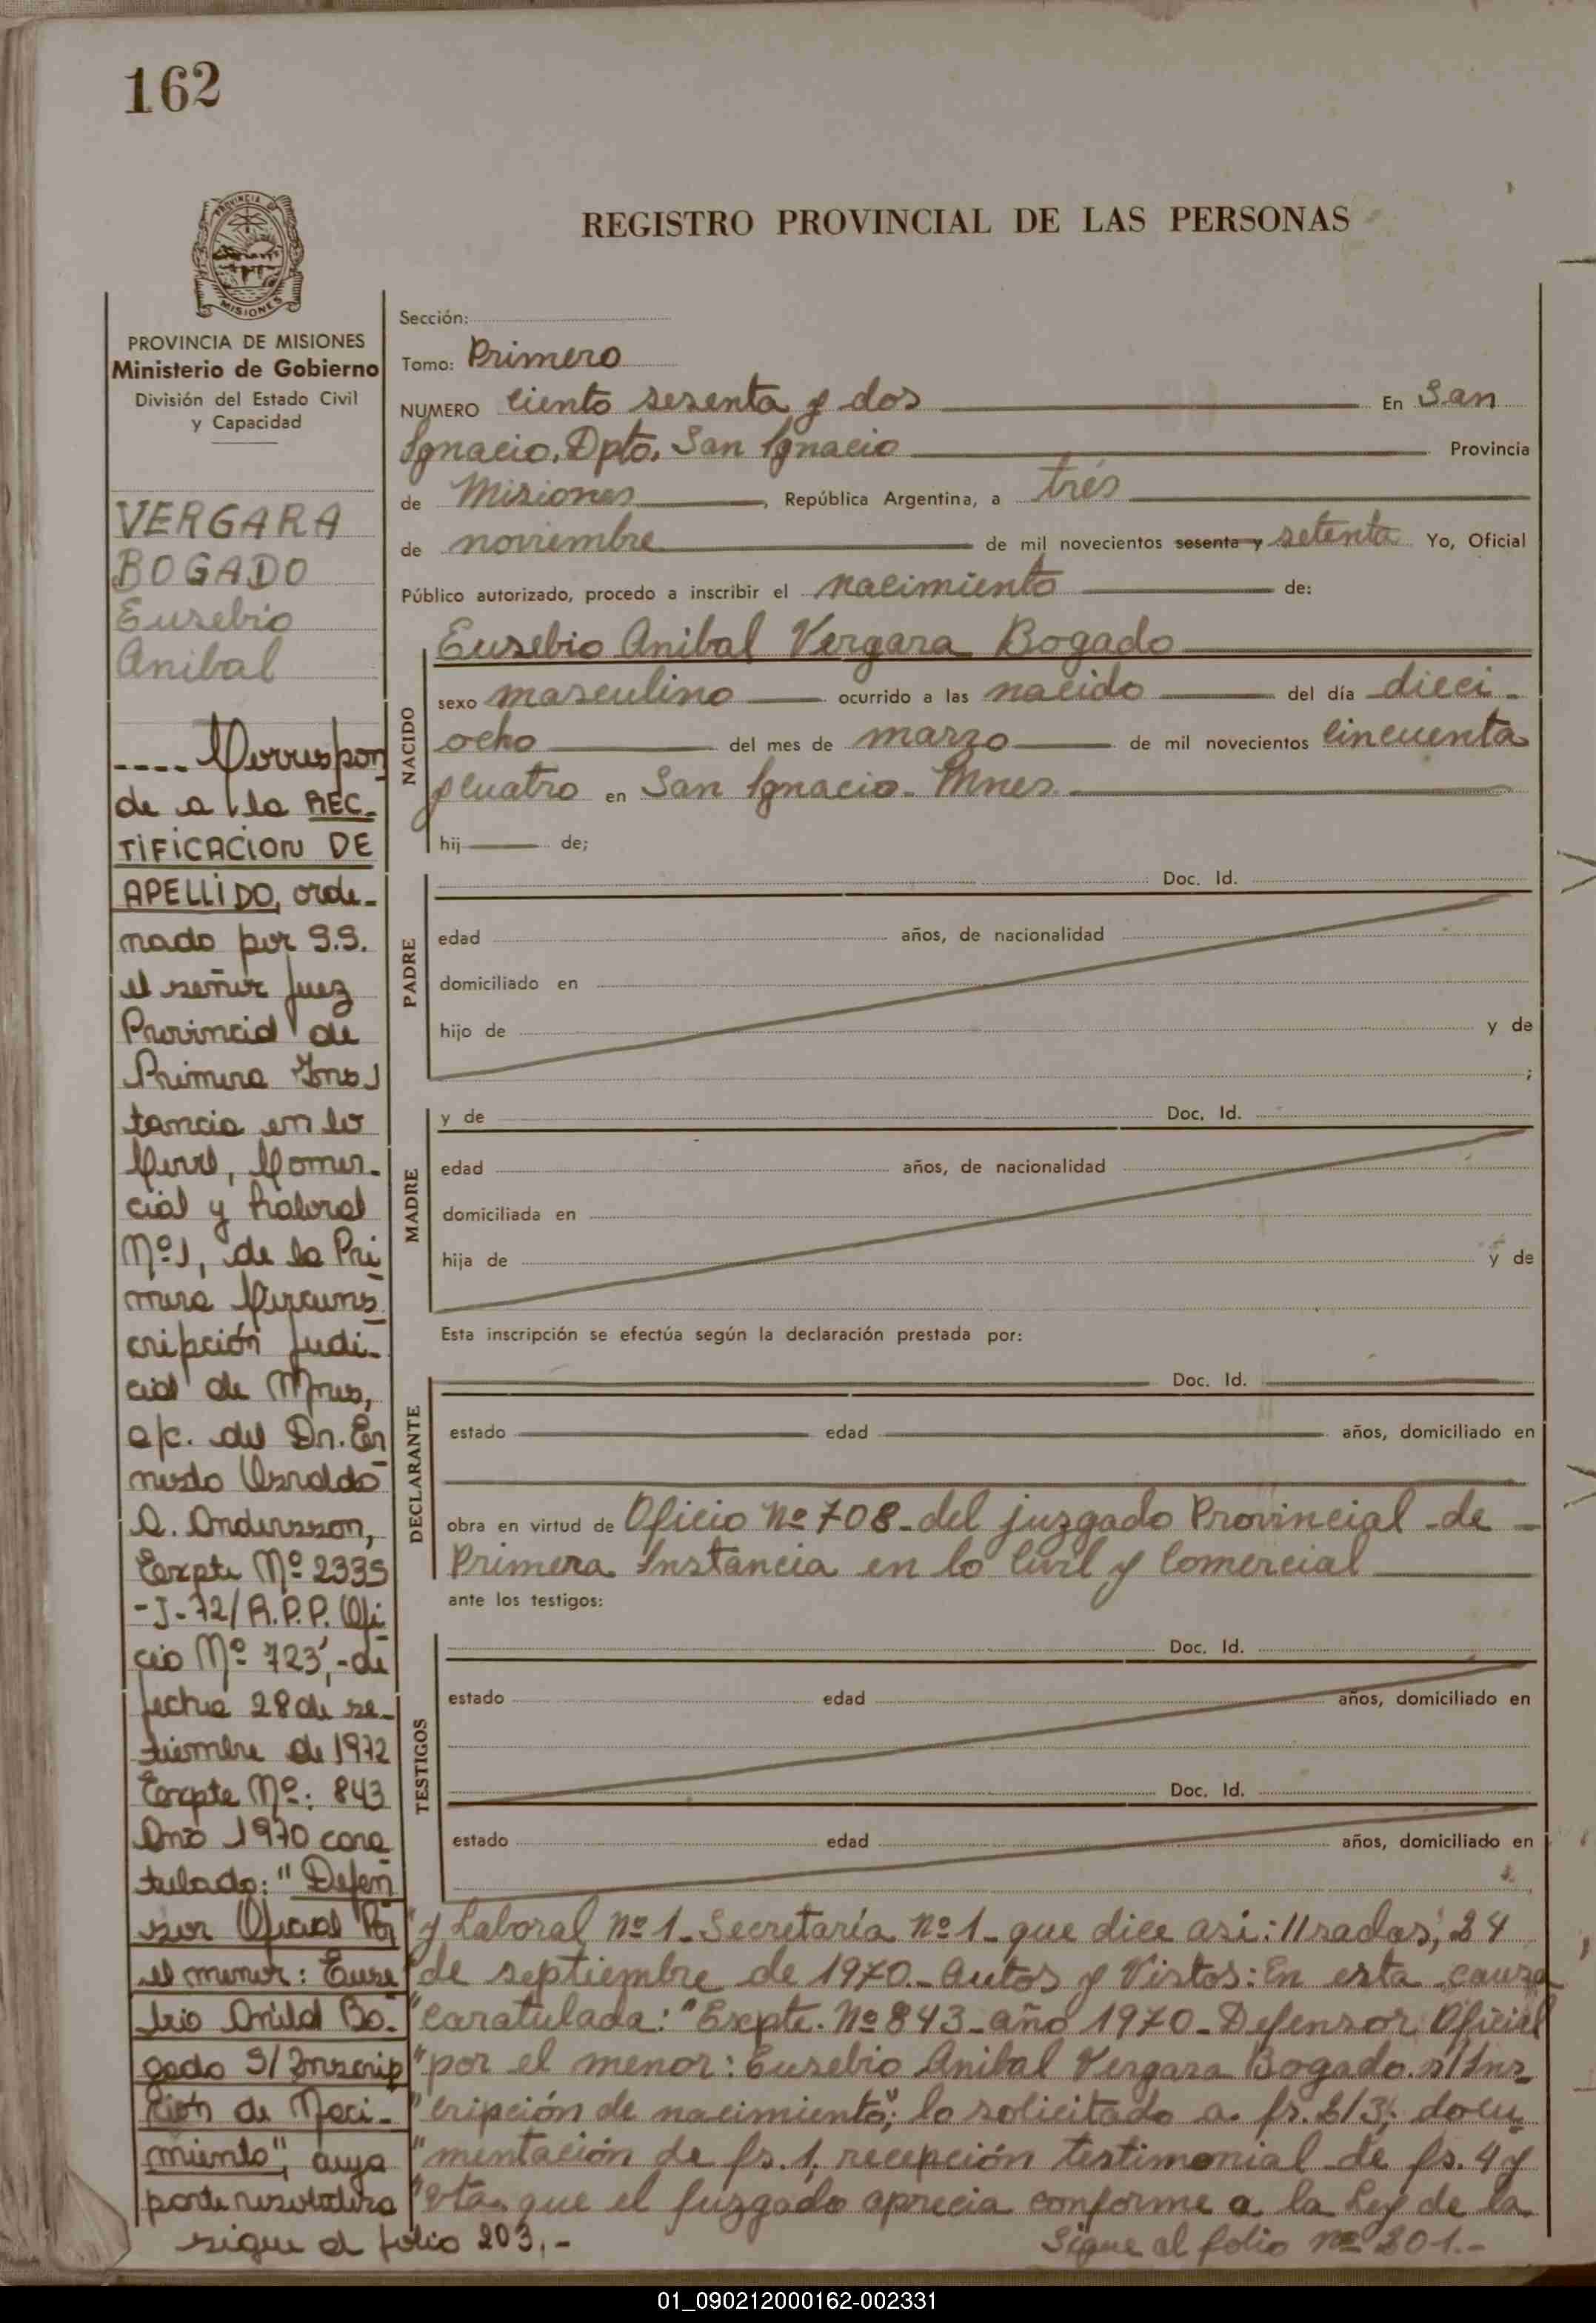 162
PROVINCIA DE MISIONES
REGISTRO PROVINCIAL DE LAS PERSONAS
PROVINCIA DE MISIONES
Ministerio de Gobierno
División del Estado Civil
y Capacidad
VERGARA
BOGADO
Eusebio
Anibal
---- Correspon
de a la REC-
TIFICACION DE
APELLIDO, orde-
nado por S.S.
el señor Juez
Provincial de
Primera Ins
tancia en lo
Civil, Comer-
cial y Laboral
Nº1, de la Pri
mera Circuns
cripción Judi-
cial de Mnes,
a/c. del Dr. Er
nesto Osvaldo
A. Andersson,
Expte Nº 2335
-J-72/R.P.P. Ofi
cio Nº 723,- de
fecha 28 de se-
tiembre de 1972
Expte Nº: 843
Año 1970 cara
tulado: "Defen
sor Oficial Por
el menor: Euse
bio Anibal Bo-
gado S/ Inscrip
ción de Naci-
miento", cuya
parte resolutiva
sigue al folio 203.-
Sección:
Tomo: Primero
NUMERO ciento sesenta y dos En San
Ignacio. Dpto. San Ignacio Provincia
de Misiones, República Argentina, a tres
de noviembre de mil novecientos sesenta y setenta Yo, Oficial
Público autorizado, procedo a inscribir el nacimiento de:
Eusebio Anibal Vergara Bogado
NACIDO
sexo masculino ocurrido a las nacido del día dieci-
ocho del mes de marzo de mil novecientos cincuenta
y cuatro en San Ignacio. Mnes.
hij de;
PADRE
Doc. Id.
edad años, de nacionalidad
domiciliado en
hijo de y de
;
MADRE
y de Doc. Id.
edad años, de nacionalidad
domiciliada en
hija de y de
Esta inscripción se efectúa según la declaración prestada por:
DECLARANTE
Doc. Id.
estado edad años, domiciliado en
obra en virtud de Oficio Nº 708-del juzgado Provincial-de-
Primera Instancia en lo Civil y Comercial
ante los testigos:
TESTIGOS
Doc. Id.
estado edad años, domiciliado en
Doc. Id.
estado edad años, domiciliado en
"y Laboral Nº1-Secretaría Nº1-que dice asi: //sadas, 24
"de septiembre de 1970.-Autos y Vistos: En esta causa
"caratulada: "Expte. Nº843-año 1970-Defensor Oficial
"por el menor: Eusebio Anibal Vergara Bogado. s/Ins-
"cripción de nacimiento"; lo solicitado a fs. 2/3; docu-
"mentación de fs. 1; recepción testimonial de fs. 4 y
"vta. que el Juzgado aprecia conforme a la Ley de la
Sigue al folio nº 201.-
01_090212000162-002331